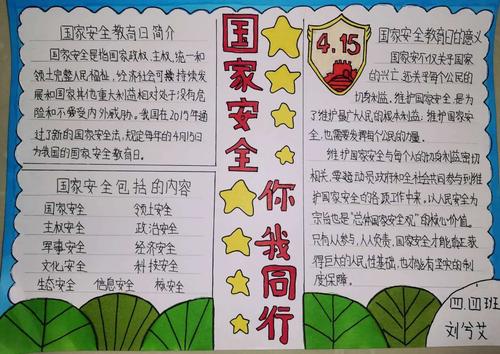 国家安全教育日简介
国家安全是指国家政权、主权、统一和
领土完整人民福祉,经济社会可持续发
展和国家其他重大利益相对处于没有危
险和不受内外威胁。我国在2015年通
过了新的国家安全法,规定每年的4月15日
为我国的国家安全教育日。
国家安全包括的内容
国家安全 领土安全
主权安全 政治安全
军事安全 经济安全
文化安全 科技安全
生态安全 信息安全 核安全
国家安全
你我同行
4.15
国家安全教育日的意义
国家安不仅关乎国家
的兴亡,还关乎每个公民的
切身利益.维护国家安全,是为
了维护最广大人民的根本利益.维护国家安
全,也需要发挥每个公民的力量.
维护国家安全与每个人的切身利益密切
相关,要路动员政府和全社会共同参与到维
护国家安全的各项工作来,以人民安全为
宗旨也是“总体国家安全观”的核心价值。
只有人参与,人人负责,国家安全才能真正获
得巨大的人民性基础,也才能有坚实的制
度保障。
四.四班
刘兮艾